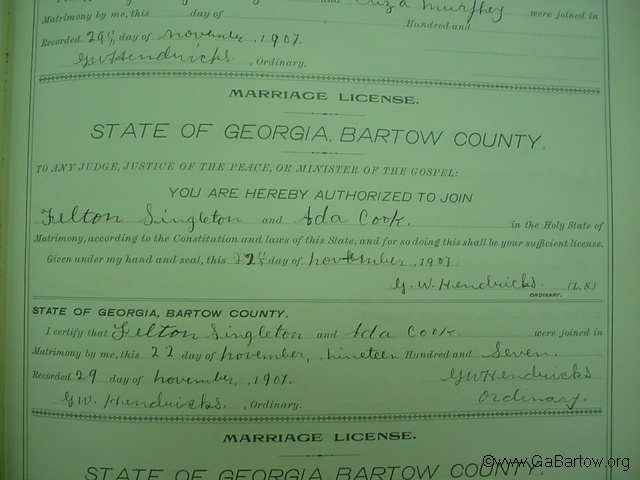 Eliza Murphey were joined in
Matrimony by me, this day of Hundred and
Recorded 29th day of november, 1907.
GW Hendricks. , Ordinary.
MARRIAGE LICENSE.
STATE OF GEORGIA, BARTOW COUNTY.
TO ANY JUDGE, JUSTICE OF THE PEACE, OR MINISTER OF THE GOSPEL:
YOU ARE HEREBY AUTHORIZED TO JOIN
Felton Singleton and Ada Cook. in the Holy State of
Matrimony, according to the Constitution and laws of this State, and for so doing this shall be your sufficient license.
Given under my hand and seal, this 22" day of november, 1907.
G. W. Hendricks. (L. S.)
ORDINARY.
STATE OF GEORGIA, BARTOW COUNTY.
I certify that Felton Singleton and Ada Cook were joined in
Matrimony by me, this 22 day of november, nineteen Hundred and Seven.
Recorded 29 day of november, 1907. GW Hendricks
GW. Hendricks. , Ordinary. Ordinary.
MARRIAGE LICENSE.
STATE OF GEORGIA, BARTOW COUNTY.
©www.GaBartow.org